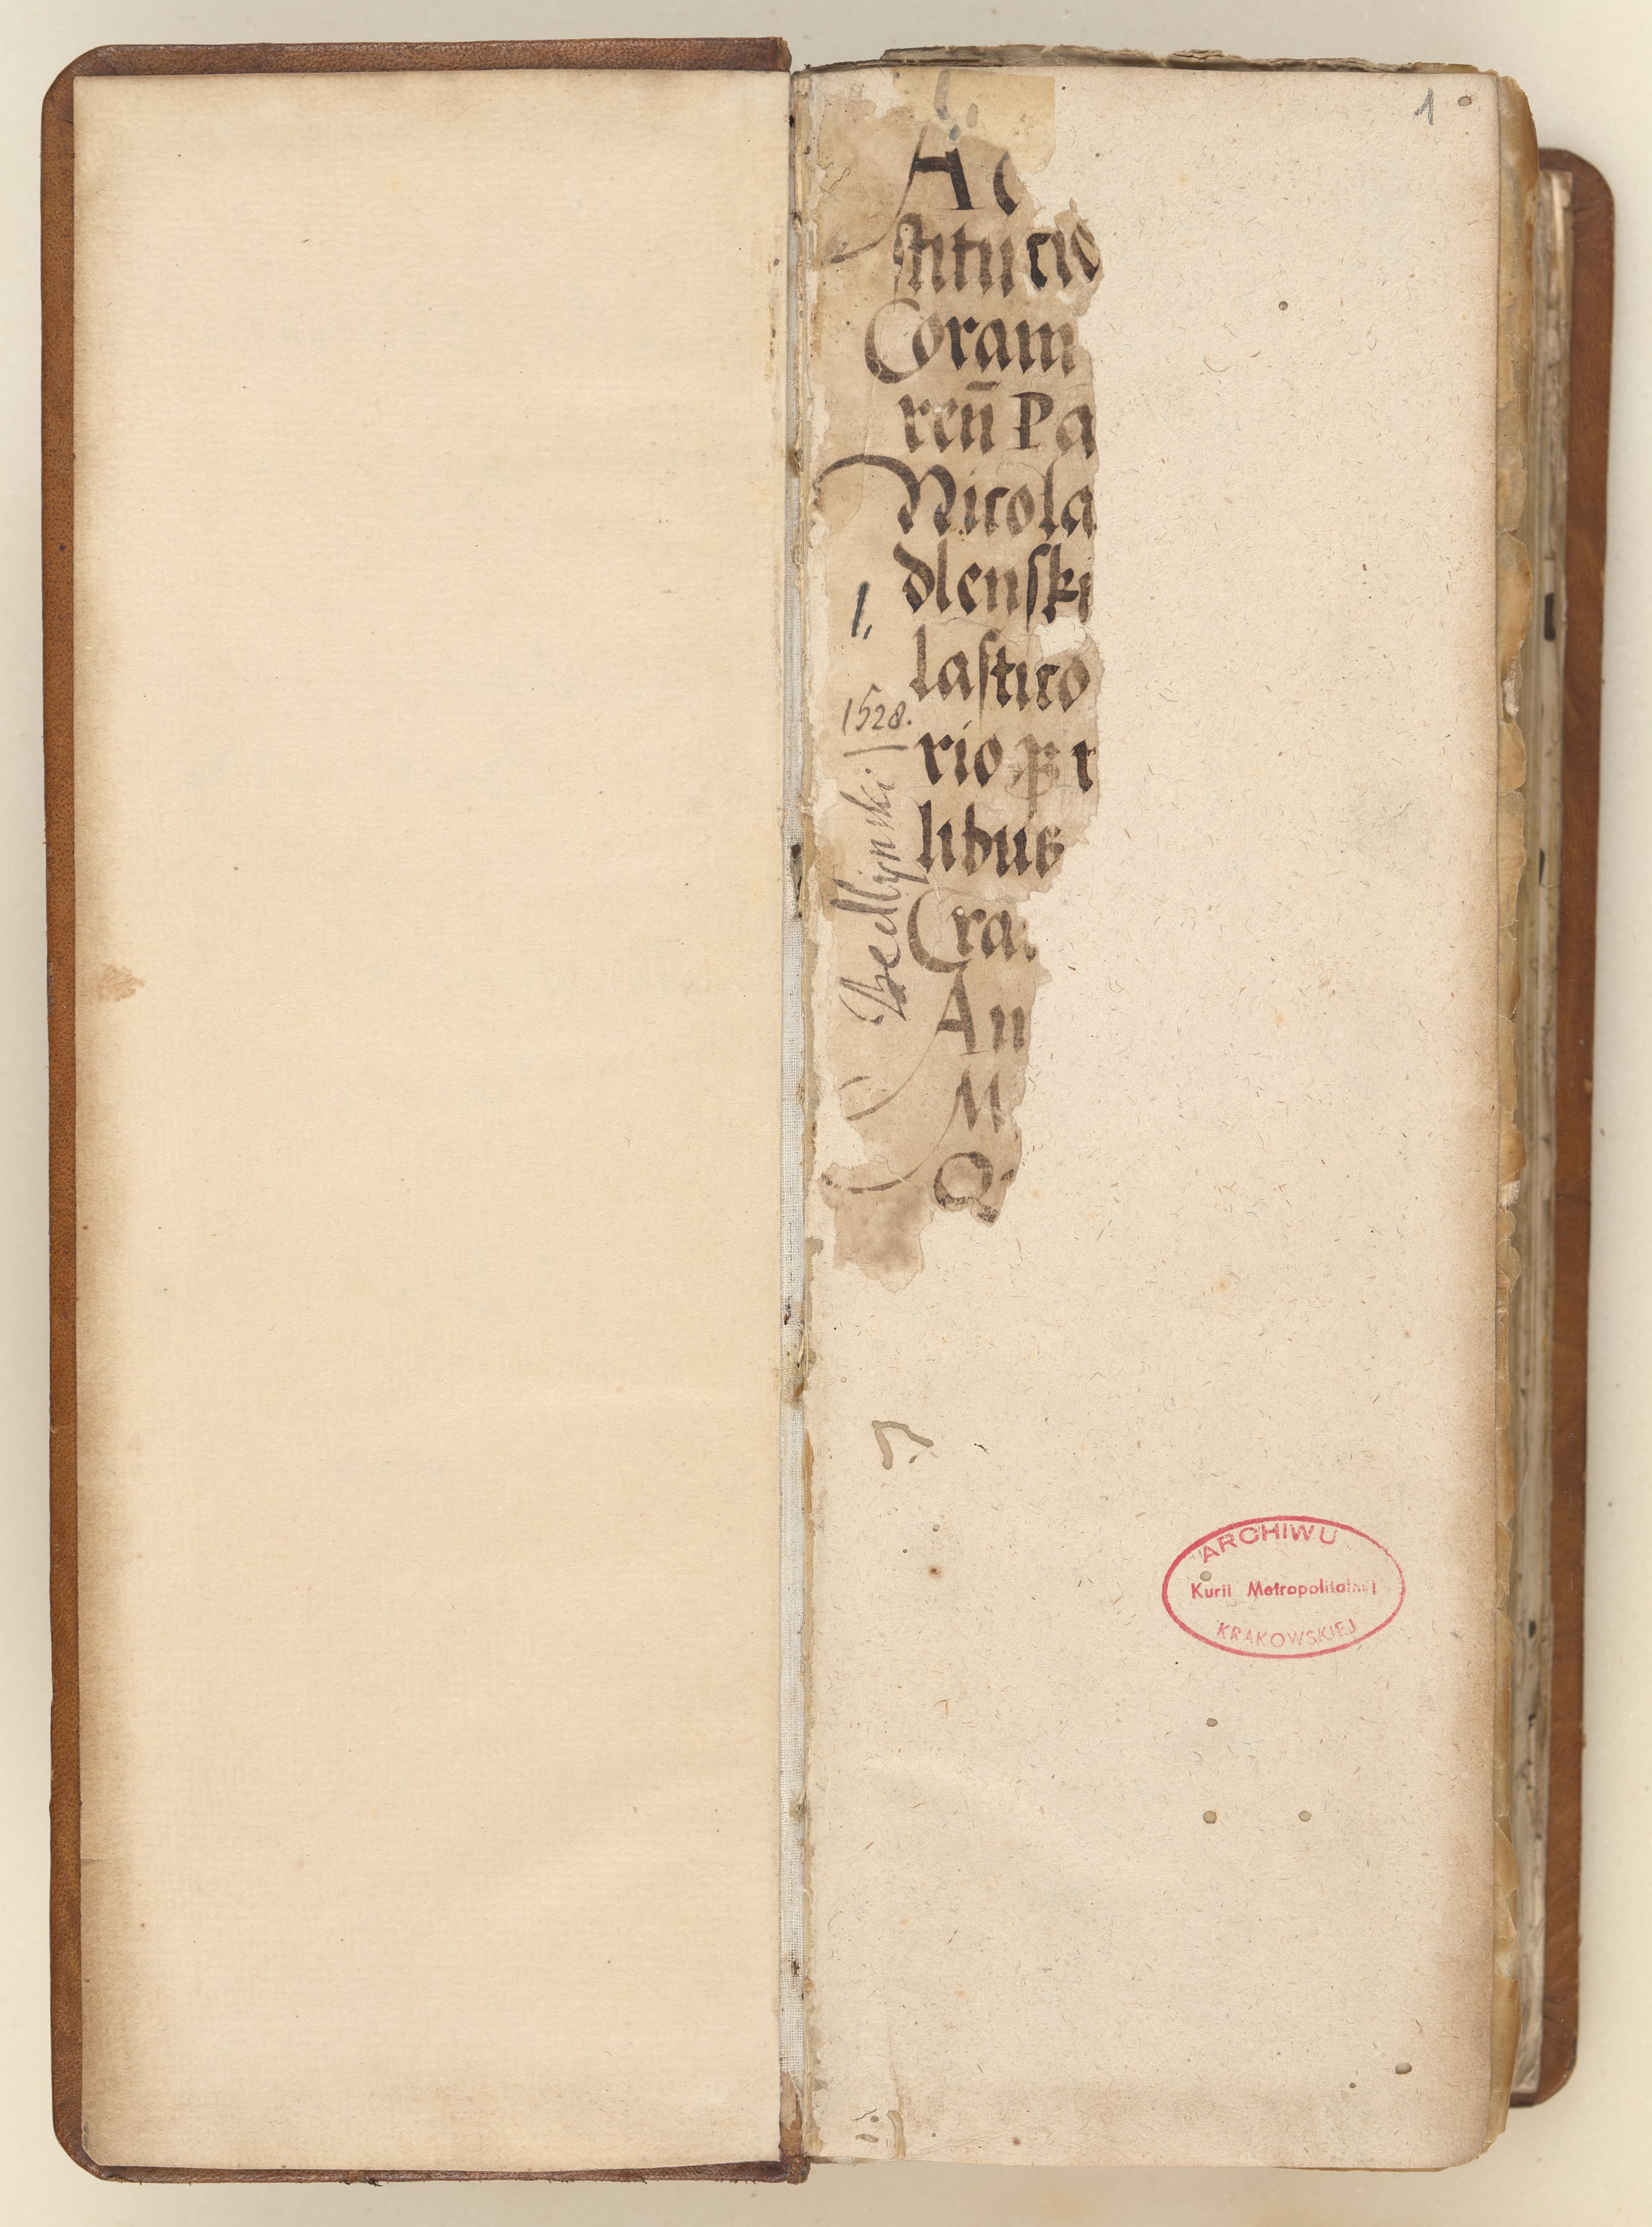 1
Ac
stitucio
Coram
ren̄ Pa
Nicola
dlenski
1,,
lastico
1528.
rio ꝓ t
Bedlÿnski
libus
Cra
An
M
Q
ARCHIWU
Kurii Metropolitalnej
KRAKOWSKIEJ